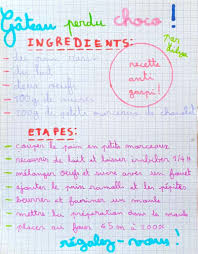 Gâteau perdu choco !
par
INGREDIENTS:
- du pain rassi
- du lait
- deux oeufs
- 100g de sucre
- 100g de petits morceaux de chocolat
recette
anti
gaspi !
ETAPES:
- couper le pain en petits morceaux
- recouvrir de lait et laisser imbiber 1/4 H
- mélanger oeufs et sucre avec un fouet
- ajouter le pain ramolli et les pépites
- beurrer et fariner un moule
- mettre la préparation dans le moule
- placer au four 45 m à 200
régalez-vous !